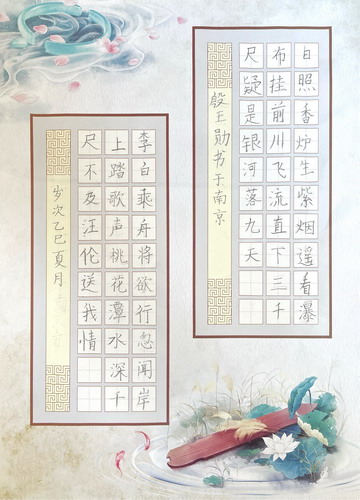 日照香炉生紫烟遥看瀑
布挂前川飞流直下三千
尺疑是银河落九天
殷王勋书于南京
李白乘舟将欲行忽闻岸
上踏歌声桃花潭水深千
尺不及汪伦送我情
岁次乙巳夏月